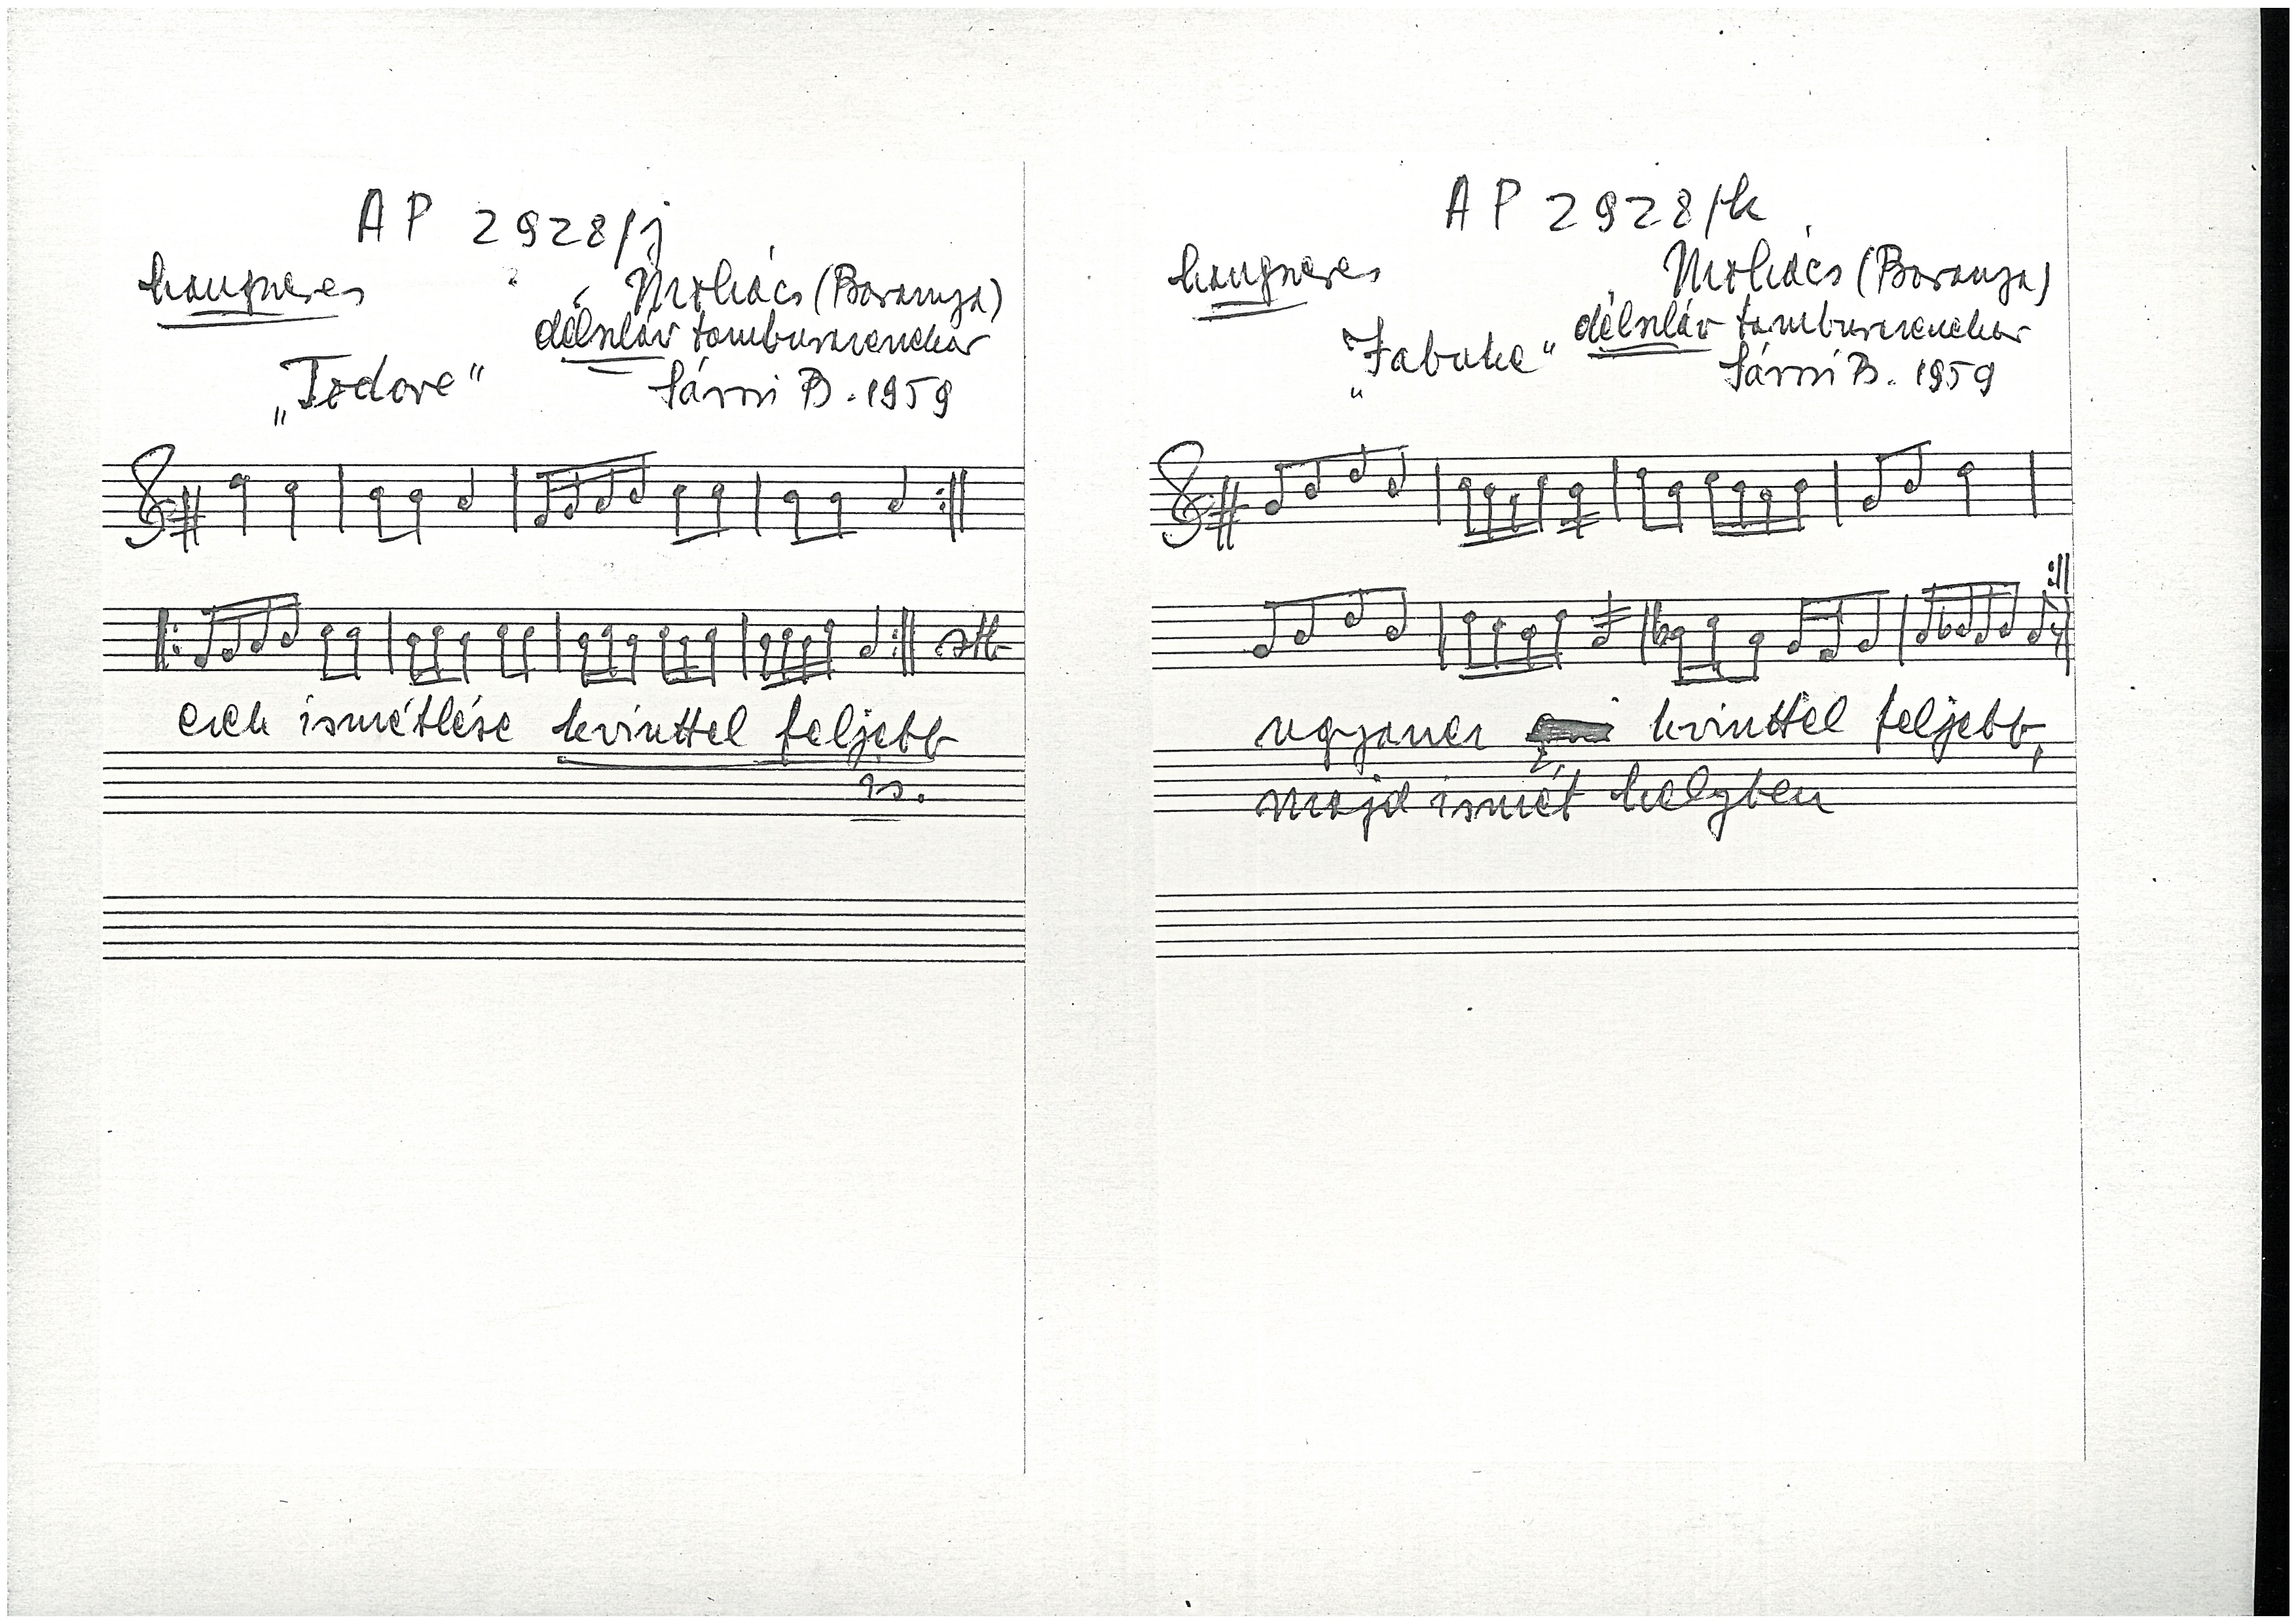 AP 2928/j
hangszeres
Mohács (Baranya)
délszláv tamburazenekar
„Todore"
Sárosi B. 1959
stb
ezek ismétlése kvinttel feljebb
is.
AP 2928/k
hangszeres
Mohács (Baranya)
délszláv tamburazenekar
Sárosi B. 1959
ugyanez kvinttel feljebb,
majd ismét helyben